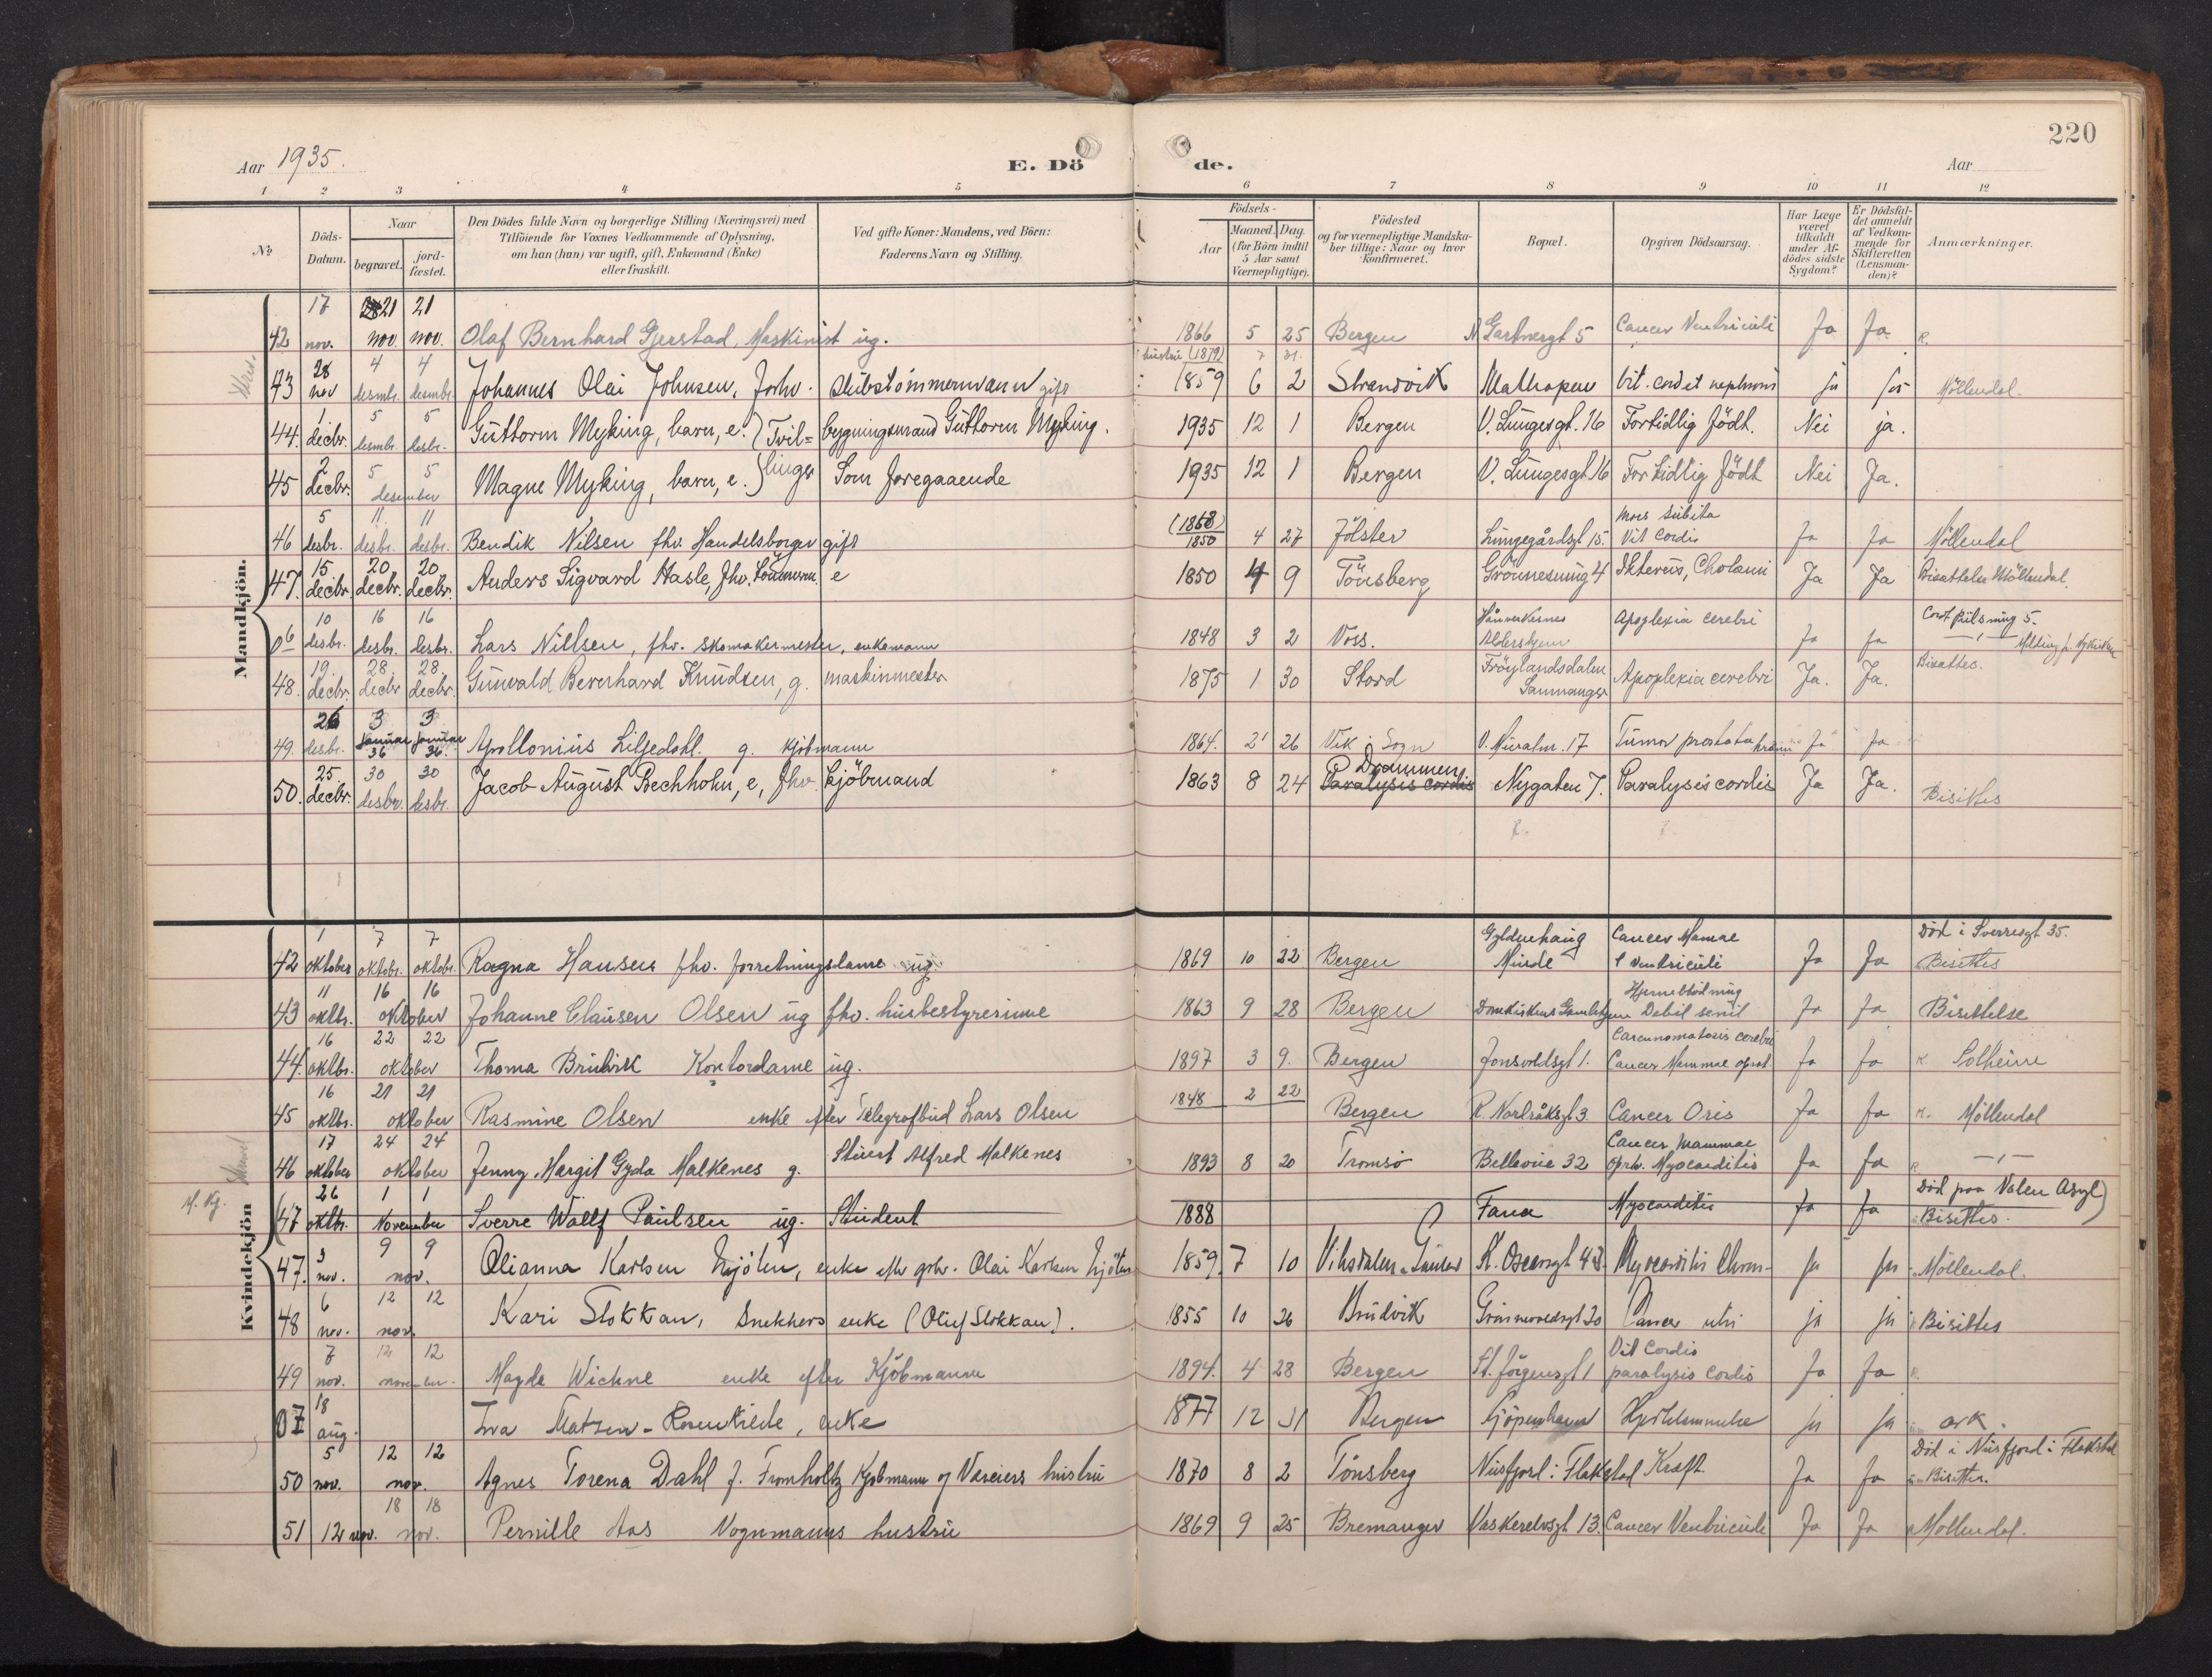 220
Aar 1935. E. Dö de. Aar
1 2 3 4 5 6 7 8 9 10 11 12
No. Döds-Datum. Naar begravet. jord-fæstet. Den Dödes fulde Navn og borgerlige Stilling (Næringsvei) med Tilföiende for Voxnes Vedkommende af Oplysning, om han (hun) var ugift, gift, Enkemand (Enke) eller fraskilt. Ved gifte Koner: Mandens, ved Börn: Faderens Navn og Stilling. Födsels- Aar Maaned. Dag. (for Börn indtil 5 Aar samt Værnepligtige). Födested og for værnepligtige Mandskaber tillige: Naar og hvor Konfirmeret. Bopæl. Opgiven Dödsaarsag. Har Læge været tilkaldt under Afdödes sidste Sygdom? Er Dödsfaldet anmeldt af Vedkommende for Skifteretten (Lensmanden)? Anmærkninger.
Mandkjön.
42 17 nov. 21 nov. 21 nov. Olaf Bernhard Gjerstad, Maskinist ug. 1866 5 25 Bergen N. Gartnergt 5 Cancer Ventriculi Ja Ja R.
hustru (1879)
43 28 nov 4 desmb. 4 desmb. Johannes Olai Johnsen, Forhv. skibstömmermann gift 1859 6 2 Strandvik Mathopen Vit. cord et nephrosis ja ja Möllendal.
44. 1 decbr. 5 desmb. 5 desbr. Guttorm Myking, barn, e. } Tvil= bygningsmand Guttorm Myking. 1935 12 1 Bergen V. Lungesgt. 16 Fortidlig födt. Nei ja.
45 2 decbr. 5 5 desember Magne Myking, barn, e. } linger Som foregaaende 1935 12 1 Bergen V. Lungesgt 16 For tidlig födt Nei Ja.
46 5 desbr. 11 desbr. 11 desbr. Bendik Nilsen fhv. Handelsborger gift (1858) 1850 4 27 Jölster Lungegårdsgt 15. Mors subita Vit Cordis Ja Ja Möllendal
47. 15 decbr. 20 decbr. 20 decbr. Anders Sigvard Hasle, fhv. Tömmerm. e 1850 4 9 Tönsberg Grönnesmug 4 Ikterus, Cholæmi Ja Ja Bisættelse Möllendal.
06 10 desbr. 16 desbr. 16 desbr. Lars Nillsen, fhv. skomakermester, enkemann 1848 3 2 Voss. Aldershjem Apoplexia cerebri Ja Ja
48. 19. decbr. 28. decbr 28. decbr. Gunvald Bernhard Knudsen, g. maskinmester 1875 1 30 Stord Fröylandsdalen Samnanger Apoplexia cerebri Ja. Ja. Bisættes.
49. 26 desbr. 3 Januar 36 3 Januar 36. Apollonius Liljedahl. g. kjöbmann 1864. 2 26 Vik i Sogn V. Muralm. 17 Tumor prostata Ja Ja
50. 25. decbr. 30 desbr. 30 desbr. Jacob August Bechholm, e, fhv. kjöbmand 1863 8 24 Drammen Paralysis cordis Nygaten 7. Paralysis cordis Ja Ja. Bisettes
Kvindekjön
42 1 oktober 7 oktobr. 7 oktobr. Ragna Hansen fhv. forretningsdame ug 1869 10 22 Bergen Gyldenhaug Minde Cancer Mamae & Ventriculi Ja Ja Död i Sverresgt 35. Bisettes
43 11 oktbr. 16 16 oktober Johanne Clausen Olsen ug fhv. husbestyrerinne 1863 9 28 Bergen Domkirkens Gamlehjem Hjerneblödning Debil senil Ja Ja Bisettelse
44. 16 oktbr. 22 22 oktober Thoma Brudvik Kontordame ug. 1897 3 9. Bergen Jonsvoldsgt 1. Carcinomatosis cerebri Cancer Mammae oprat Ja Ja R. Solheim
45 16 oktbr. 21 21 oktober Rasmine Olsen enke efter Telegrafbud Lars Olsen 1848 2 22 Bergen R. Nordråksgt 3 Cancer Oris Ja Ja R. Möllendal
46 17 oktober 24 24 oktober Jenny Margit Gyda Malkenes g. Stuert Alfred Malkenes 1893 8 20 Tromsö Bellevue 32 Cancer mammae oprt. Myocarditis Ja Ja R. —"—
M. Kj. (47 26 oktbr. 1 1 November Sverre Wallf Paulsen ug. Student 1888 Fana Myocarditis Ja Ja Död paa Valen Asyl) Bisettes.
47. 3 nov. 9 9 nov. Olianna Karlsen Mjölen, enke eftr grbr. Olai Karlsen Mjölen 1859 7 10 Viksdalen i Gaular K. Oscarsgt 43. Myocarditis Chron. ja ja Möllendal.
48 6 nov. 12 12 nov. Kari Stokkan, Snekkers enke (Oluf Stokkan). 1855 10 26 Brudvik Grönnevoldsgt 20 Cancer utri ja ja Bisettes
49 7 nov. 12 12 november. Magda Wichne enke efter Kjöbmann 1894. 4 28 Bergen St. Jörgensgt 1 Vit Cordis paralysis cordis Ja Ja R.
07 18 aug. Eva Matsen-Rosenkilde, enke 1877 12 31 Bergen Kjöpenhavn Hjertelammelse ja ja ark
50 5 nov. 12 12 nov. Agnes Torena Dahl f. Fromholtz Kjöbmann og Væreiers hustru 1870 8 2 Tönsberg Nusfjord i Flakstad Kreft. Ja Ja Död i Nusfjord i Flakstad Bisettes.
51 12 nov. 18 18 nov. Pernille Aas Vognmanns hustru 1869 9 25 Bremanger Vaskerelvsgt 13. Cancer Ventriculi Ja Ja Möllendal.